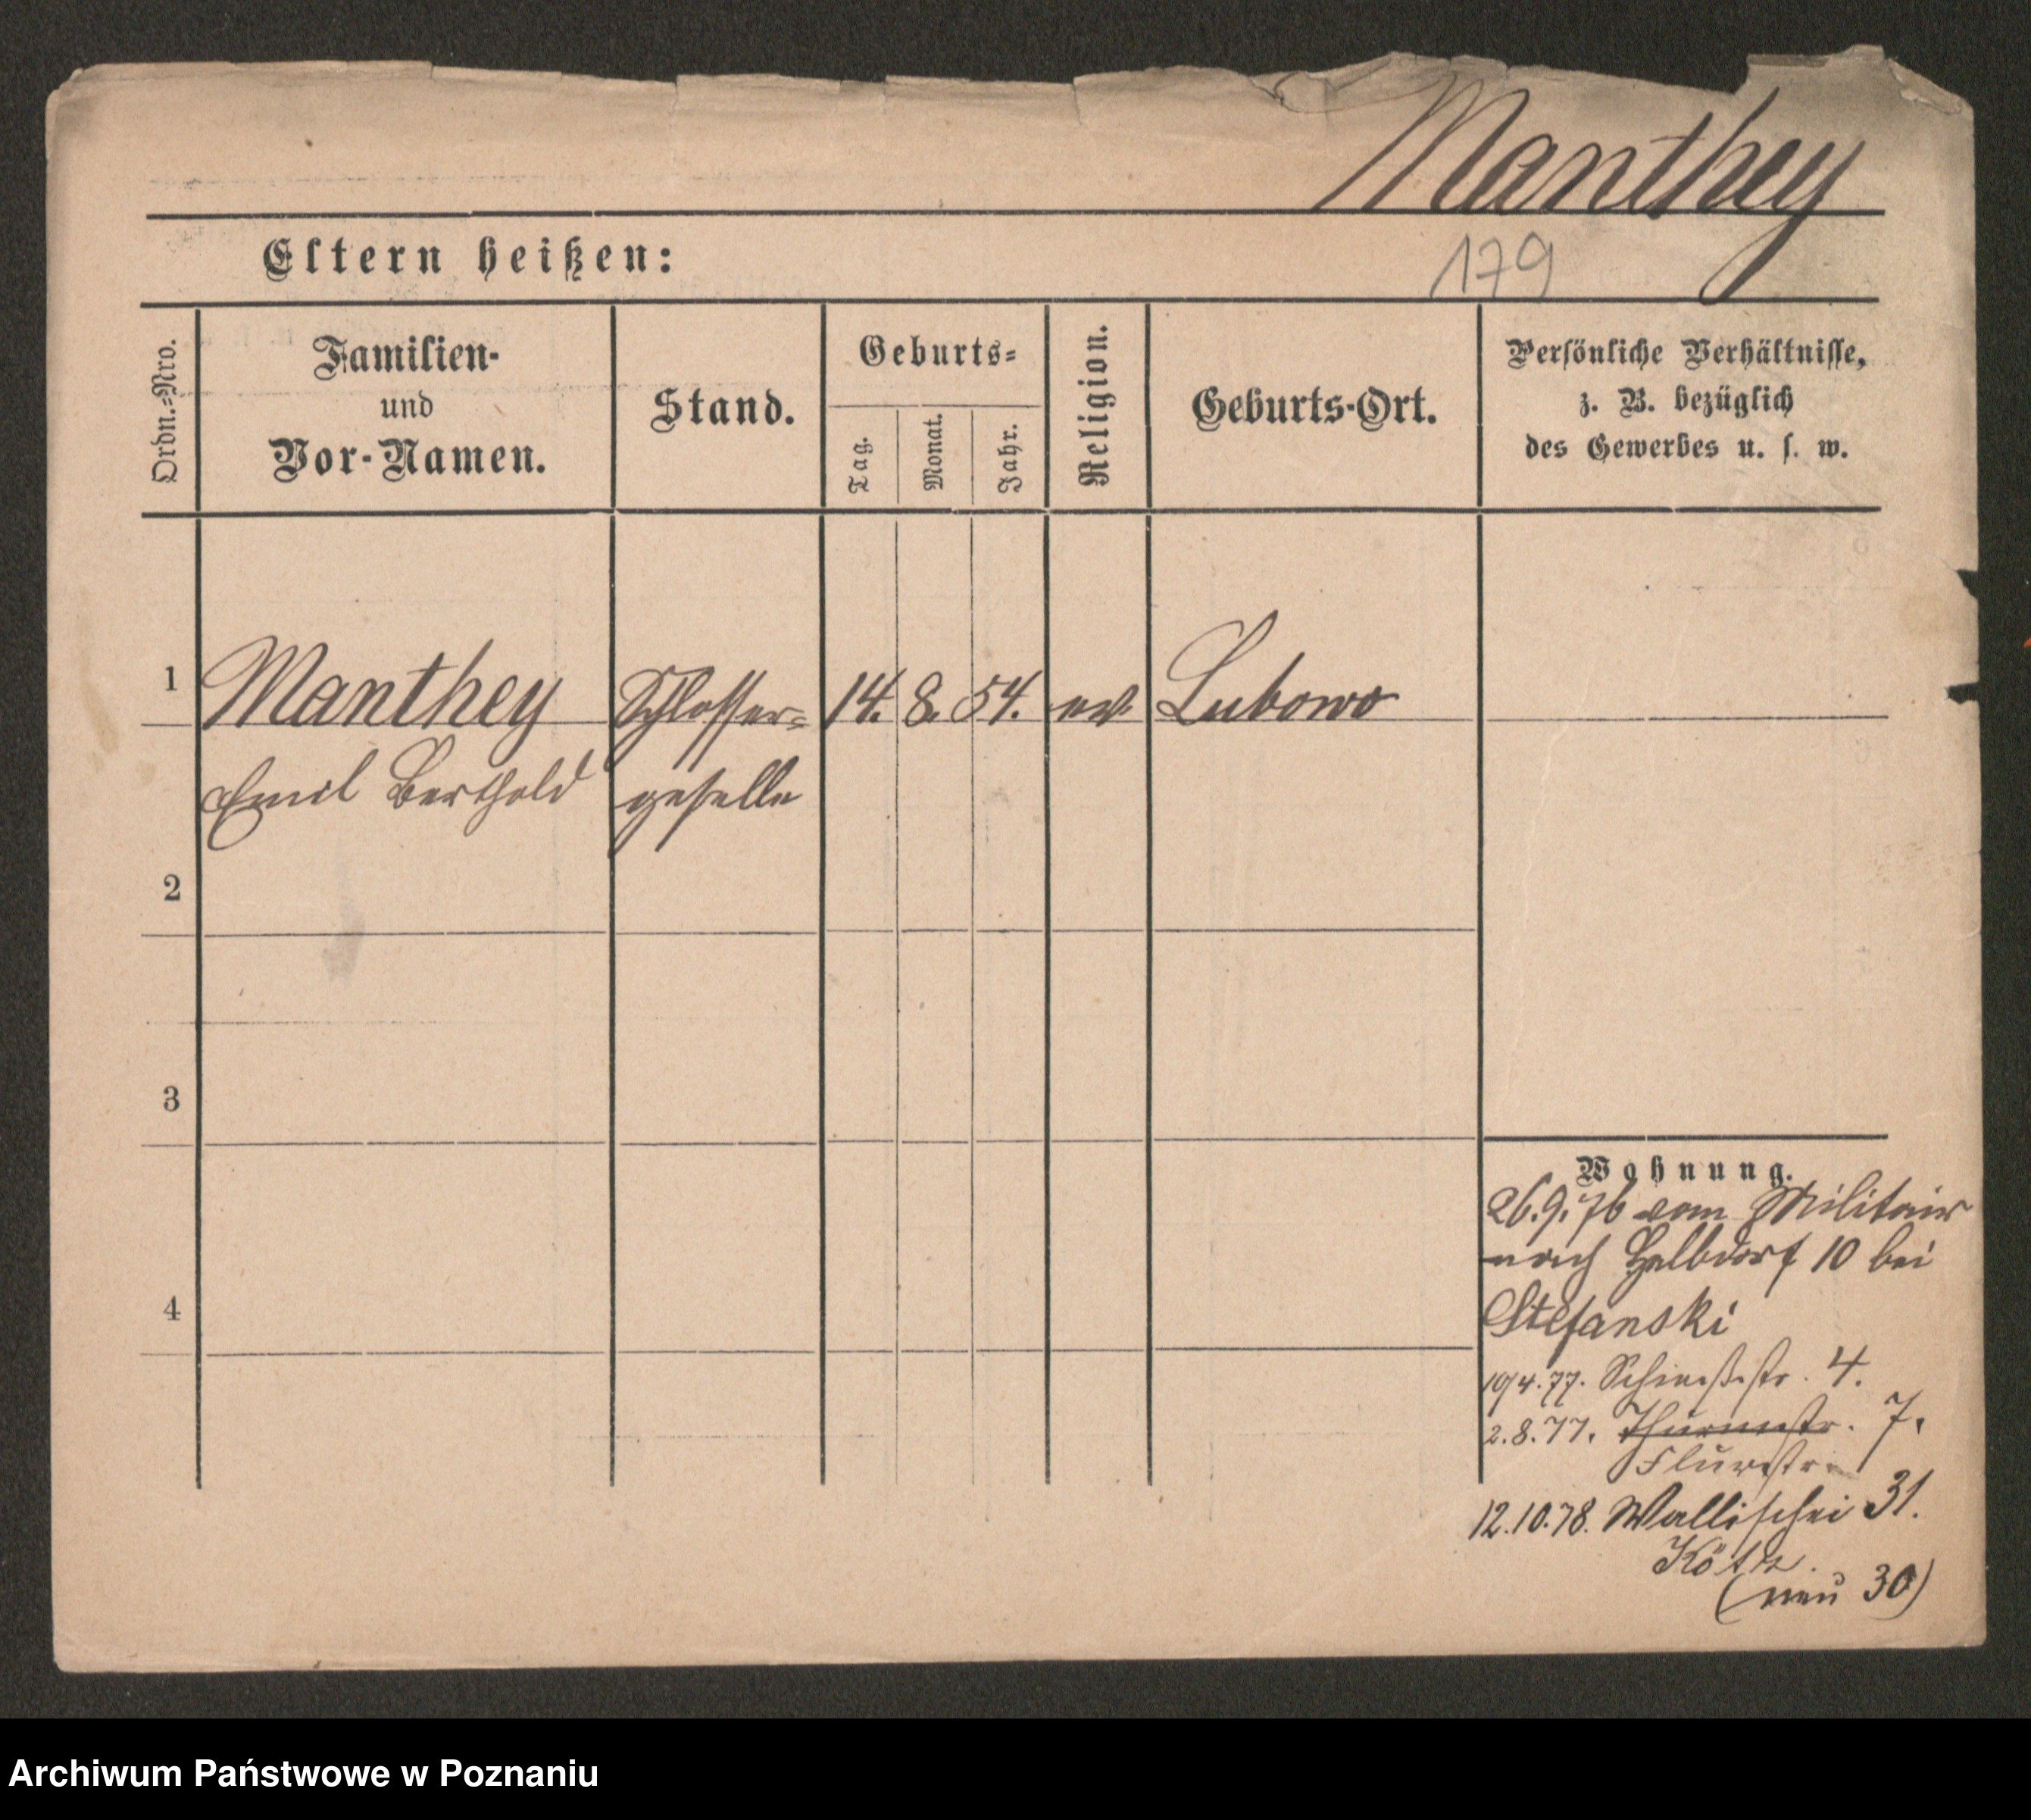 Manthey
Eltern heißen:
179
Ordn.-Nro.
Familien-
und
Vor-Namen.
Stand.
Geburts-
Tag.
Monat.
Jahr.
Religion.
Geburts-Ort.
Persönliche Verhältnisse,
z. B. bezüglich
des Gewerbes u. s. w.
1 Manthey Schlosser- 14. 8. 54. ev. Lubowo
Emil Berthold geselle
2
3
4
Wohnung.
26.9.76 vom Militair
nach Halbdorf 10 bei
Stefanski
10/4.77. Schießstr. 4.
2.8.77. Thurmstr. 7.
Flurstr.
12.10.78. Wallischei 31.
(neu 30)
Archiwum Państwowe w Poznaniu